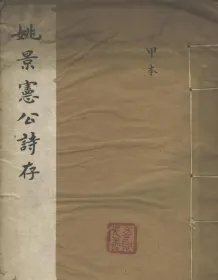 姚景憲公詩存
甲木